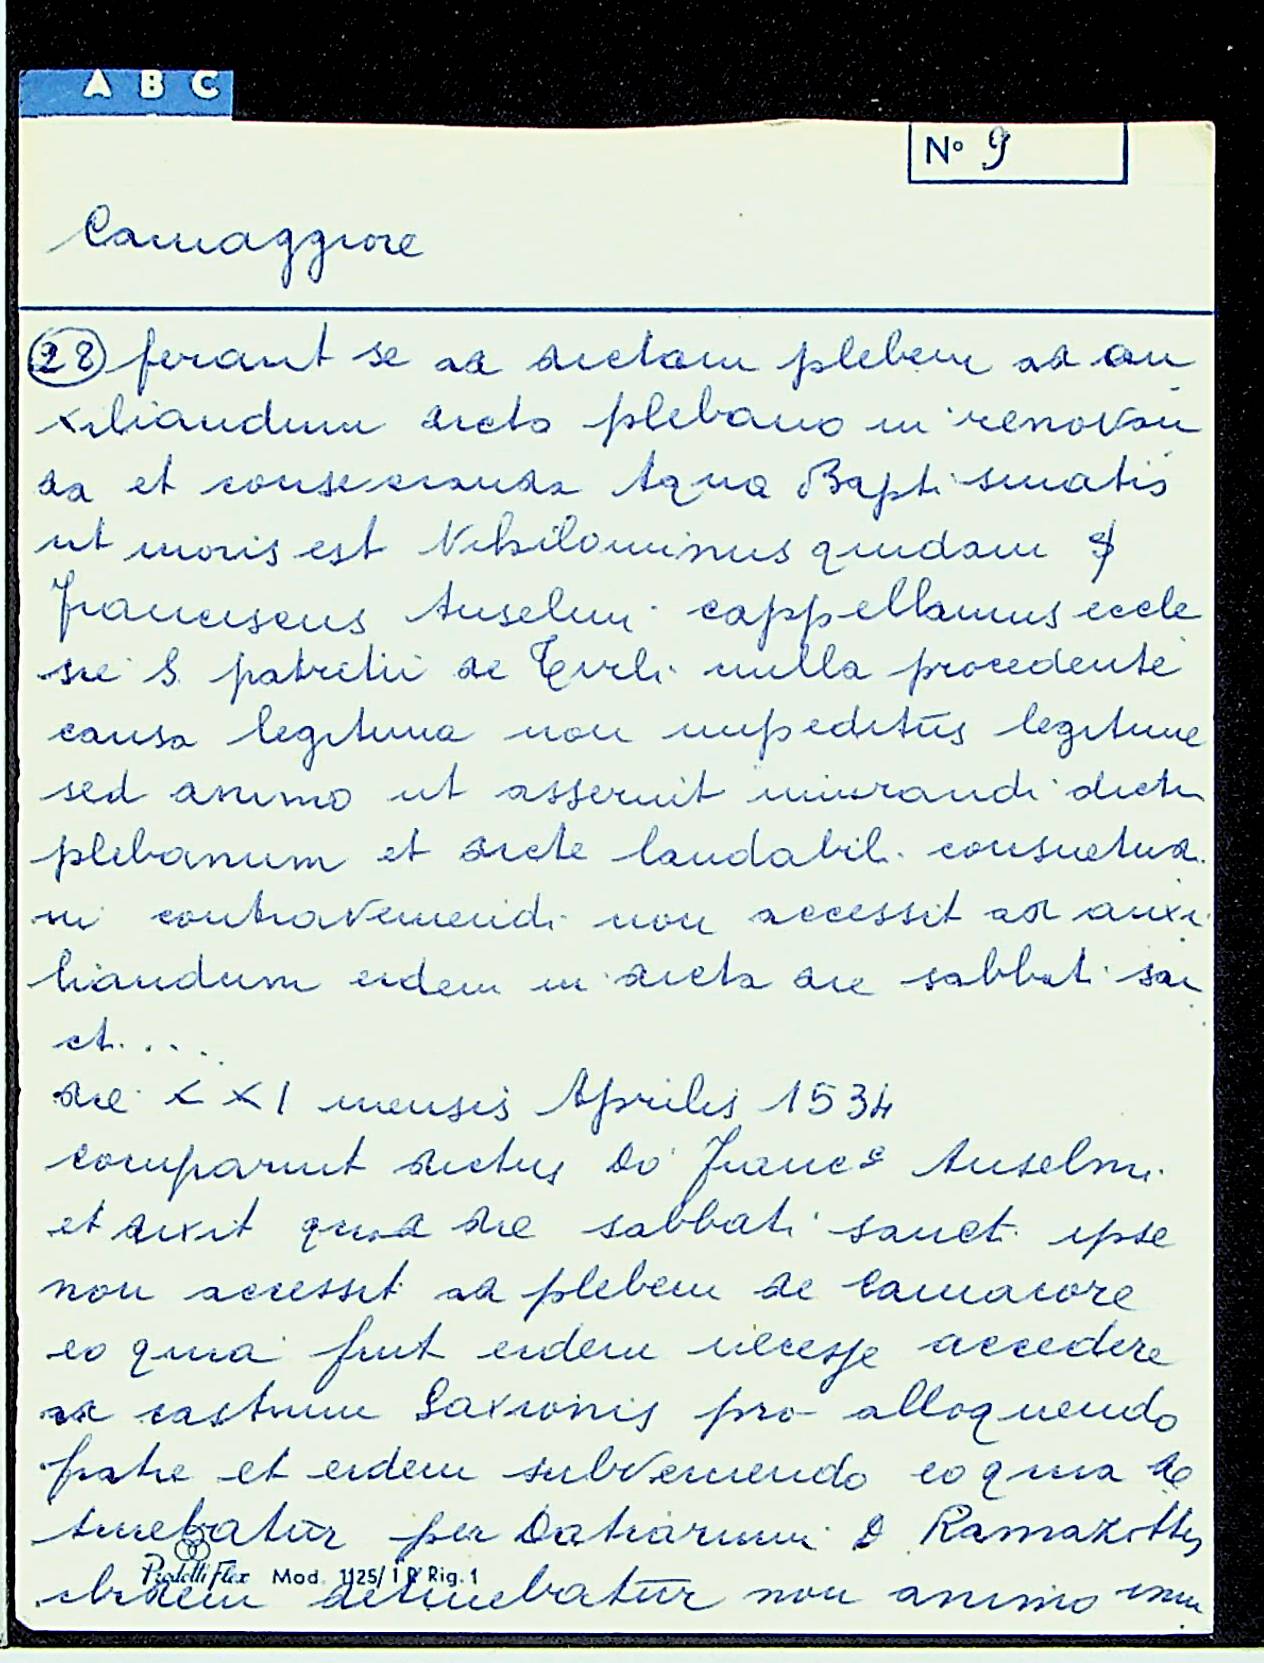 A B C
N° 9
Camaggiore
28 ferant se ad dictam plebem ad au
xiliandum dicto plebano in renovan
da et consecranda Aqua Baptismatis
ut moris est Nihilominus quidam
Franciscus Anselmi cappellanus eccle
sie S. patritii de Tirli nulla procedente
causa legitima non impeditus legitime
sed animo ut asseruit iniurandi dictu
plebanum et dicte laudabili consuetud.
ni contraveniendi non accessit ad auxi
liandum eidem in dicta die sabbati san
cti....
die XXI mensis Aprilis 1534
comparuit dictus Do Franc Anselmi
et dixit quod die sabbati sancti ipse
non accessit ad plebem de Camaiore
eo quia fuit eidem necesse accedere
ad castrum Saxionis pro alloquendo
patre et eidem subveniendo eo quia de
tinebatur per Datiarium D Ramazottus
ibidem detinebatur non animo iniu
Pratelli Flex Mod. 1125/1 R Rig. 1